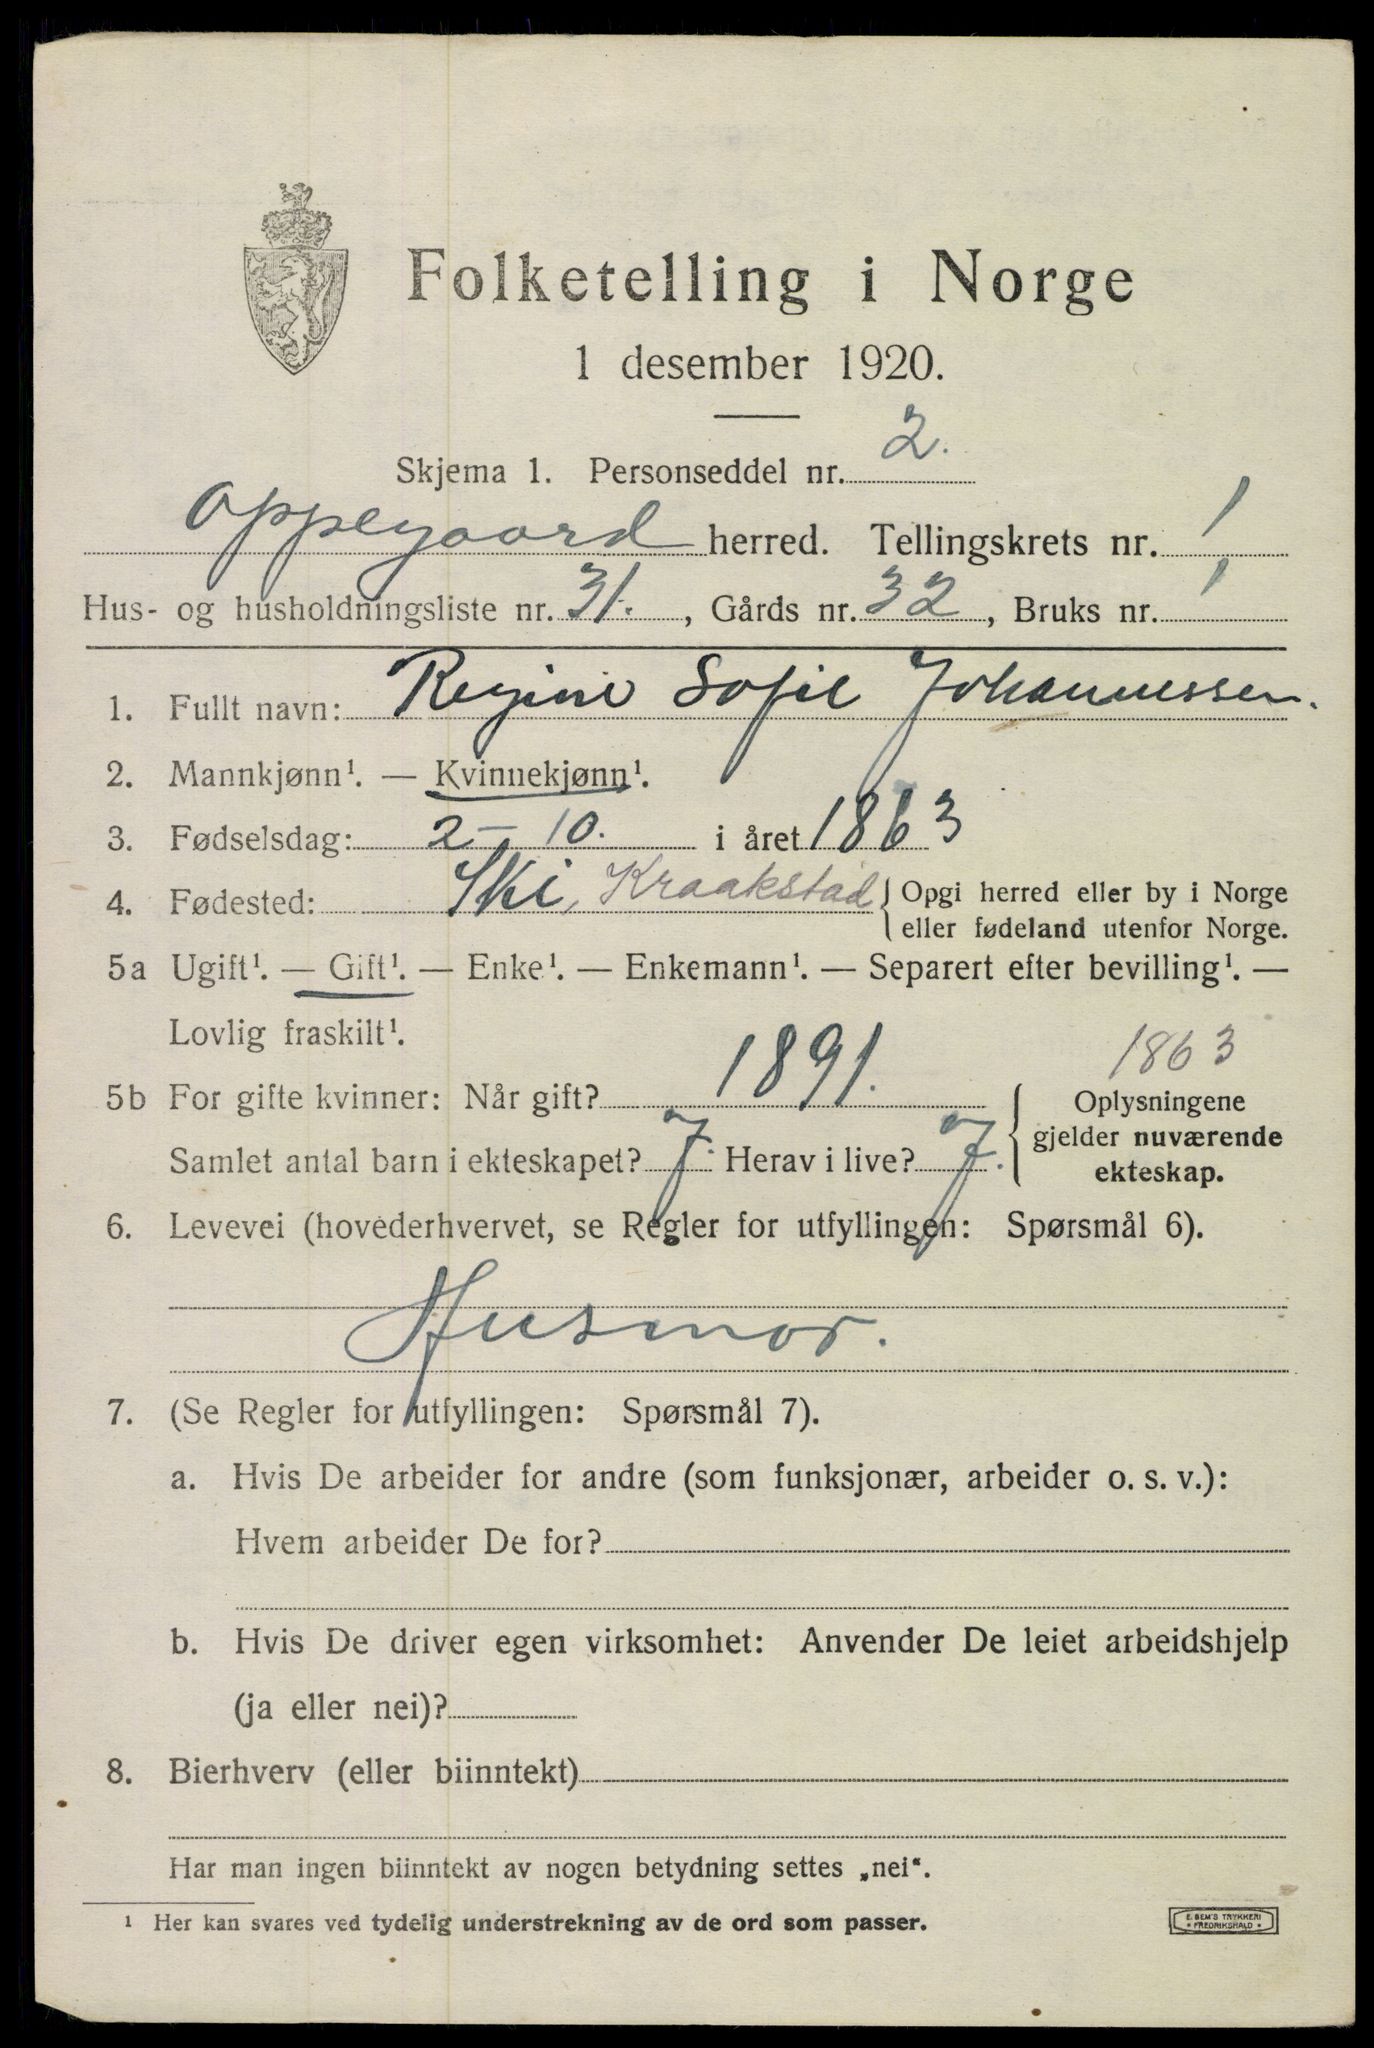 Folketelling i Norge
1 desember 1920.
Skjema 1. Personseddel nr. 2.
Oppegaard herred. Tellingskrets nr. 1
Hus- og husholdningsliste nr. 31. , Gårds nr. 32 , Bruks nr. 1
1. Fullt navn: Regine Sofie Johannessen.
2. Mannkjønn¹. — Kvinnekjønn¹.
3. Fødselsdag: 2 – 10. i året 1863
4. Fødested: Ski, Kraakstad { Opgi herred eller by i Norge
eller fødeland utenfor Norge.
5a Ugift¹. — Gift¹. — Enke¹. — Enkemann¹. — Separert efter bevilling¹. —
Lovlig fraskilt¹.
1863
5b For gifte kvinner: Når gift? 1891. Oplysningene
gjelder nuværende
Samlet antal barn i ekteskapet? 7. Herav i live? 7. ekteskap.
6. Levevei (hovederhvervet, se Regler for utfyllingen: Spørsmål 6).
Husmor.
7. (Se Regler for utfyllingen: Spørsmål 7).
a. Hvis De arbeider for andre (som funksjonær, arbeider o. s. v.):
Hvem arbeider De for?
b. Hvis De driver egen virksomhet: Anvender De leiet arbeidshjelp
(ja eller nei)?
8. Bierhverv (eller biinntekt)
Har man ingen biinntekt av nogen betydning settes „nei".
¹ Her kan svares ved tydelig understrekning av de ord som passer.
E. SEM'S TRYKKERI
* FREDRIKSHALD *